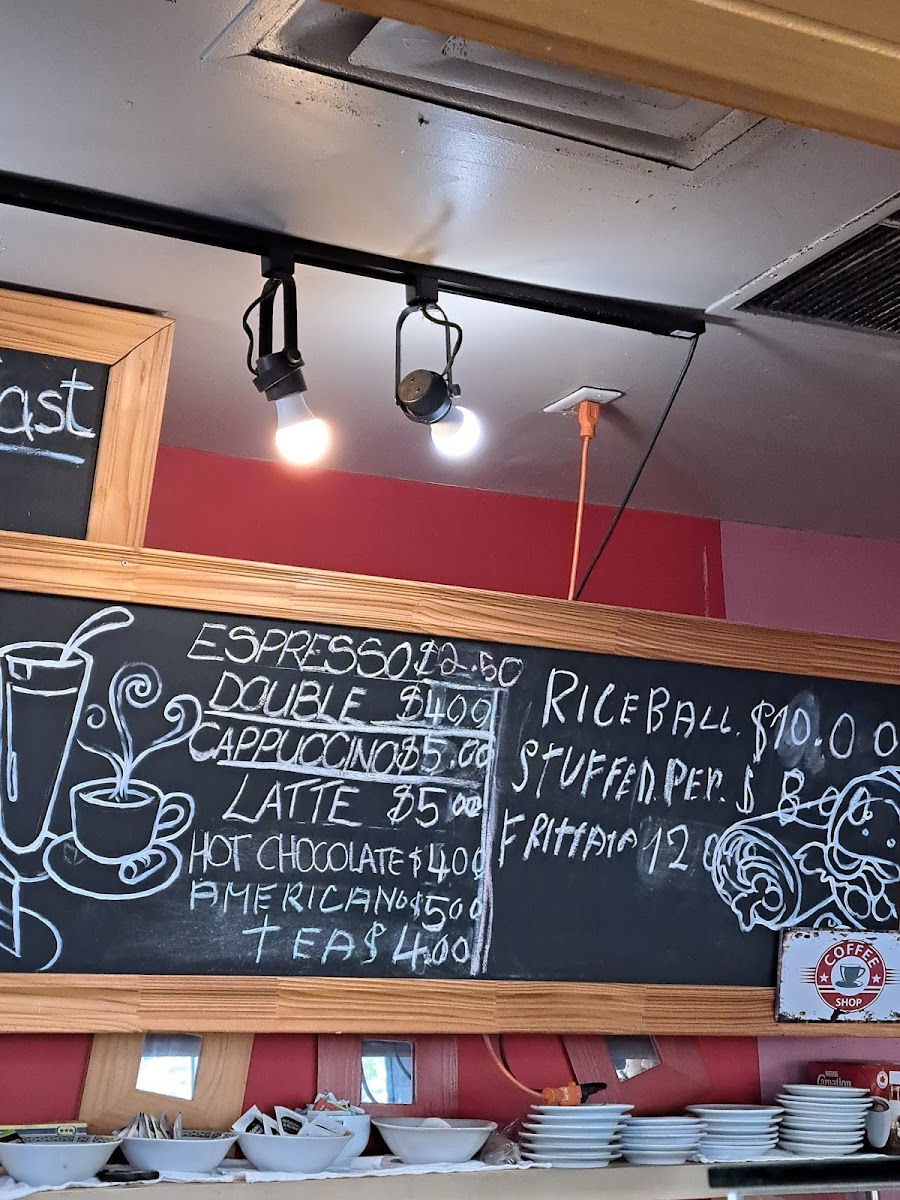 ast
ESPRESSO $2.50
DOUBLE $4.00
CAPPUCCINO $5.00
LATTE $5.00
HOT CHOCOLATE $4.00
AMERICANO $5.00
TEA $ 4.00
RICE BALL. $10.00
STUFFED. PEP. $ 8.00
FRITTATA 12
COFFEE
SHOP
Carnation